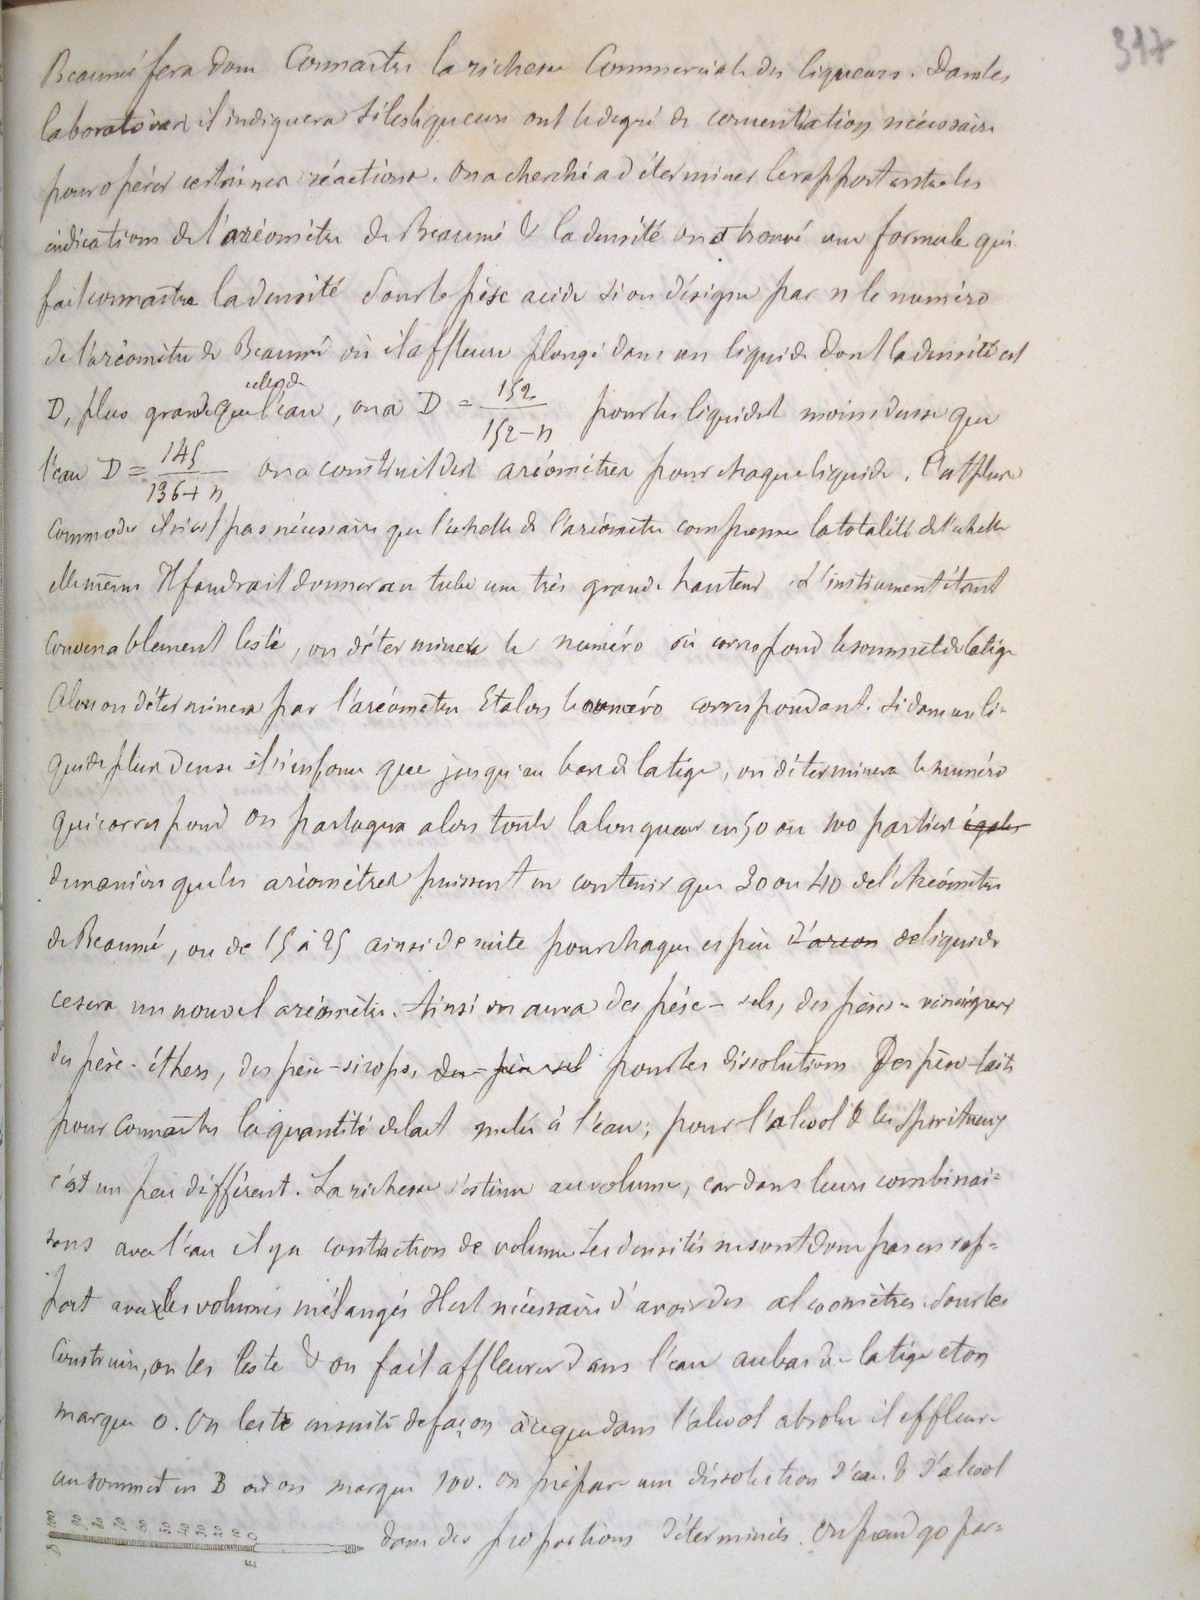 317
Beaumé fera donc connaître la richesse commerciale des liqueurs. Dans les
laboratoires il indiquera si les liqueurs ont le degré de concentration nécessaire
pour opérer certaines réactions. On a cherché a déterminer le rapport entre les
indications de l'aréomètre de Beaumé & la densité on a trouvé une formule qui
fait connaître la densité pour le pèse acide si on désigne par n le numéro
de l'aréomètre de Beaumé où il affleure plongé dans un liquide dont la densité est
D, plus grande que celle de l'eau, on a D = 152/152-n pour les liquides moins dense que
l'eau D = 145/136+n on a construit des aréomètres pour chaque liquide. C'est plus
commode il n'est pas nécessaire que l'échelle de l'aréomètre comprenne la totalité de l'échelle
elle même Il faudrait donner au tube une très grande hauteur. L'instrument étant
convenablement lesté, on détermine le numéro où correspond le sommet de la tige
Alors on déterminera par l'aréomètre Etalon le numéro correspondant. Si dans un li-
quide plus dense il n'enfonce que jusqu'au bas de la tige, on déterminera le numéro
qui correspond On partagera alors toute la longueur en 50 ou 100 parties égales
de manière que les aréomètres puissent en contenir que 30 ou 40 de l'Aréomètre
de Beaumé, ou de 15 à 25 ainsi de suite pour chaque espèce d'aréom de liquide
ce sera un nouvel aréomètre. Ainsi on aura des pèse-sels, des pèses-vinaigres
des pèse-éthers, des pèse-sirops, des-pèse-sel pour les dissolutions Des pèse-laits
pour connaître la quantité de lait mêlé à l'eau; pour l'alcool & les spiritueux
c'est un peu différent. La richesse s'estime au volume, car dans leurs combinai-
sons avec l'eau il y a contraction de volume Les densités ne sont donc pas en rap-
port avec les volumes mélangés Il est nécessaire d'avoir des alcoomètres. Pour les
construire, on les leste & on fait affleurer dans l'eau au bas de la tige et on
marque 0. On leste ensuite de façon à ce que dans l'alcool absolu il affleure
au sommet en B où on marque 100. On prépare une dissolution d'eau & d'alcool
dans des proportions déterminées. On prend 90 par-
B 100 90 80 70 60 50 40 30 20 10 0
E